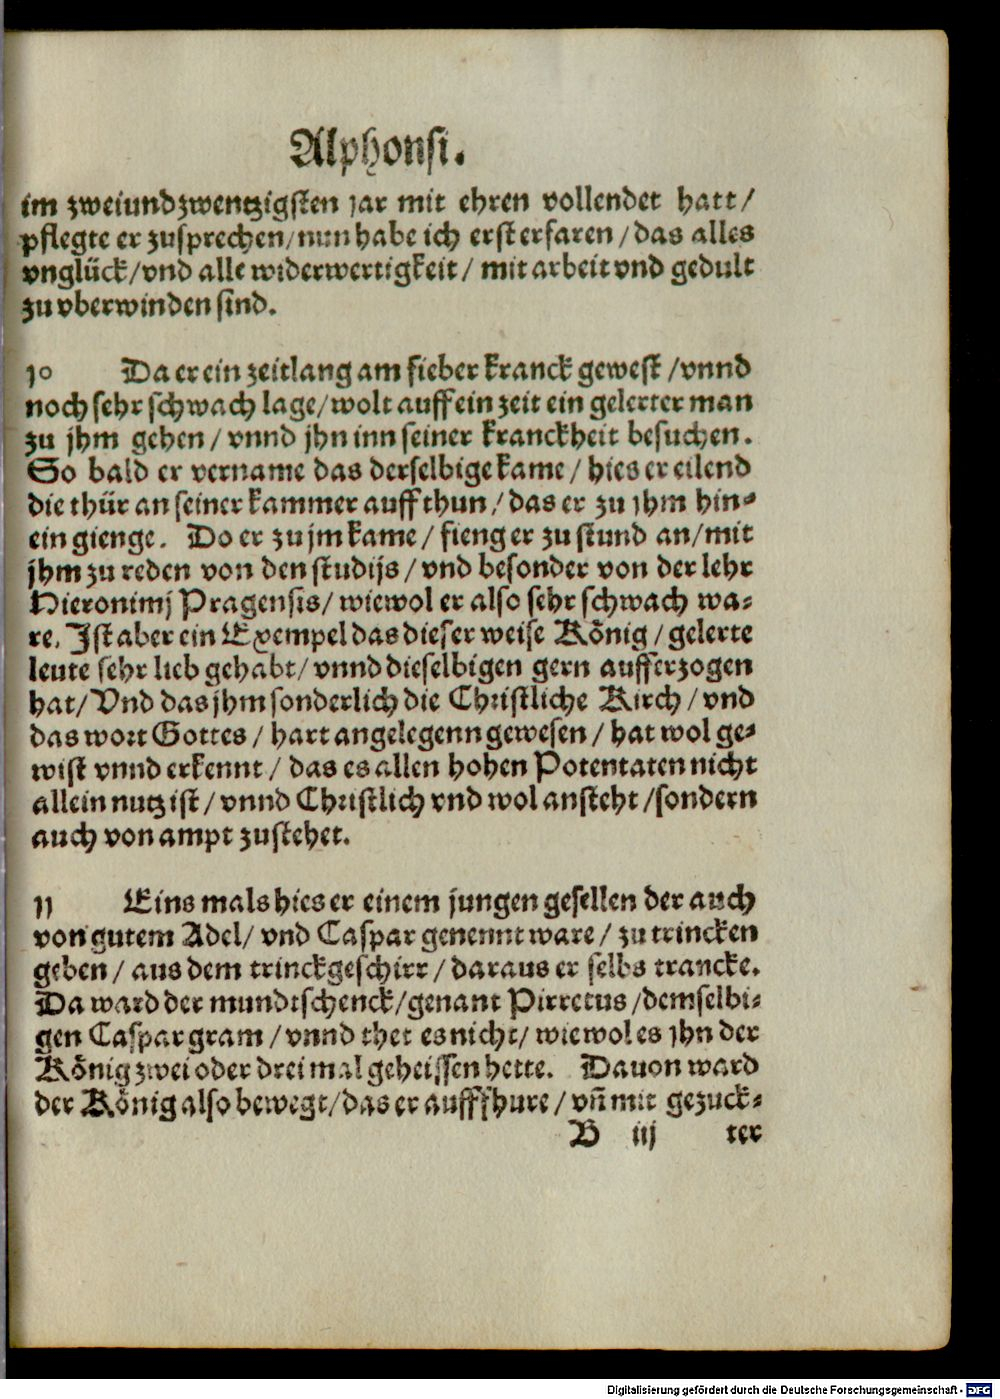 Alphonsi.
im zweiundzwentzigsten jar mit ehren vollendet hatt/
pflegte er zusprechen/nun habe ich erst erfaren/das alles
vnglück/vnd alle widerwertigkeit/ mit arbeit vnd gedult
zu vberwinden sind.
10 Da er ein zeitlang am fieber kranck gewest/vnnd
noch sehr schwach lage/wolt auff ein zeit ein gelerter man
zu jhm gehen/ vnnd jhn inn seiner kranckheit besuchen.
So bald er vername das derselbige kame/ hies er eilend
die thür an seiner kammer auff thun/das er zu jhm hin-
ein gienge. Do er zu jm kame/ fieng er zu stund an/mit
jhm zu reden von den studijs/ vnd besonder von der lehr
Hieronimj Pragensis/ wiewol er also sehr schwach wa-
re. Ist aber ein Exempel das dieser weise König/ gelerte
leute sehr lieb gehabt/ vnnd dieselbigen gern aufferzogen
hat/ Vnd das jhm sonderlich die Christliche Kirch/ vnd
das wort Gottes/ hart angelegenn gewesen/ hat wol ge-
wist vnnd erkennt/ das es allen hohen Potentaten nicht
allein nutz ist/ vnnd Christlich vnd wol ansteht/sondern
auch von ampt zustehet.
11 Eins mals hies er einem jungen gesellen der auch
von gutem Adel/ vnd Caspar genennt ware/ zu trincken
geben/ aus dem trinckgeschirr/ daraus er selbs trancke.
Da ward der mundtschenck/genant Pirretus/demselbi-
gen Caspar gram/ vnnd thet es nicht/ wiewol es jhn der
König zwei oder drei mal geheissen hette. Dauon ward
der König also bewegt/das er auff fhure/ vñ mit gezuck-
B iij ter
Digitalisierung gefördert durch die Deutsche Forschungsgemeinschaft - DFG